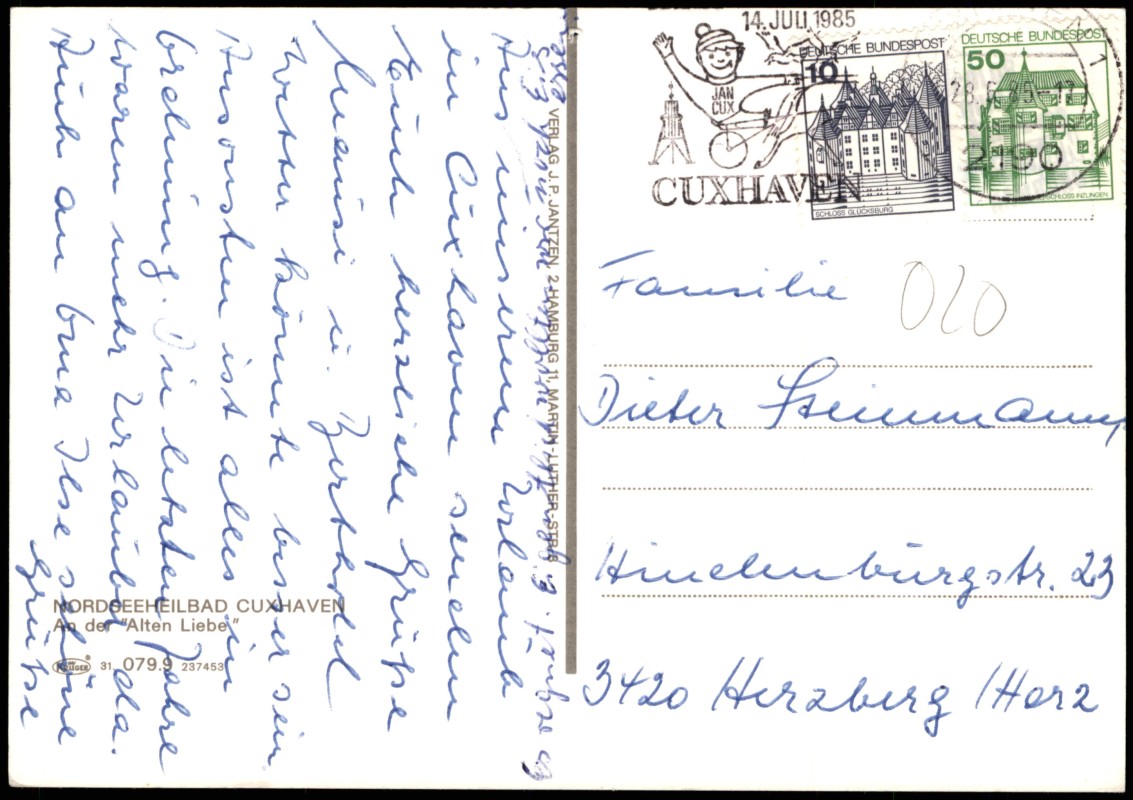 14. JULI 1985
JAN
CUX
CUXHAVEN
DEUTSCHE BUNDESPOST
10
SCHLOSS GLÜCKSBURG
DEUTSCHE BUNDESPOST
50
WASSERSCHLOSS INZLINGEN
28.6.85-17
2190
Familie
020
Dieter Steinmann
Hindenburgstr. 23
3420 Herzberg /Harz
Aus unserem Urlaub
in Cuxhaven senden
Euch herzliche Grüße
u. Berthold
Wetter könnte besser sein
Ansonsten ist alles in
Ordnung. Die letzten Jahre
waren mehr Urlauber da.
Auch an Oma Ilse schöne
Grüße
VERLAG J.P. JANTZEN, 2 HAMBURG 11, MARTIN-LUTHER-STR. 8
NORDSEEHEILBAD CUXHAVEN
An der "Alten Liebe"
KRÜGER
31. 079.9 237453